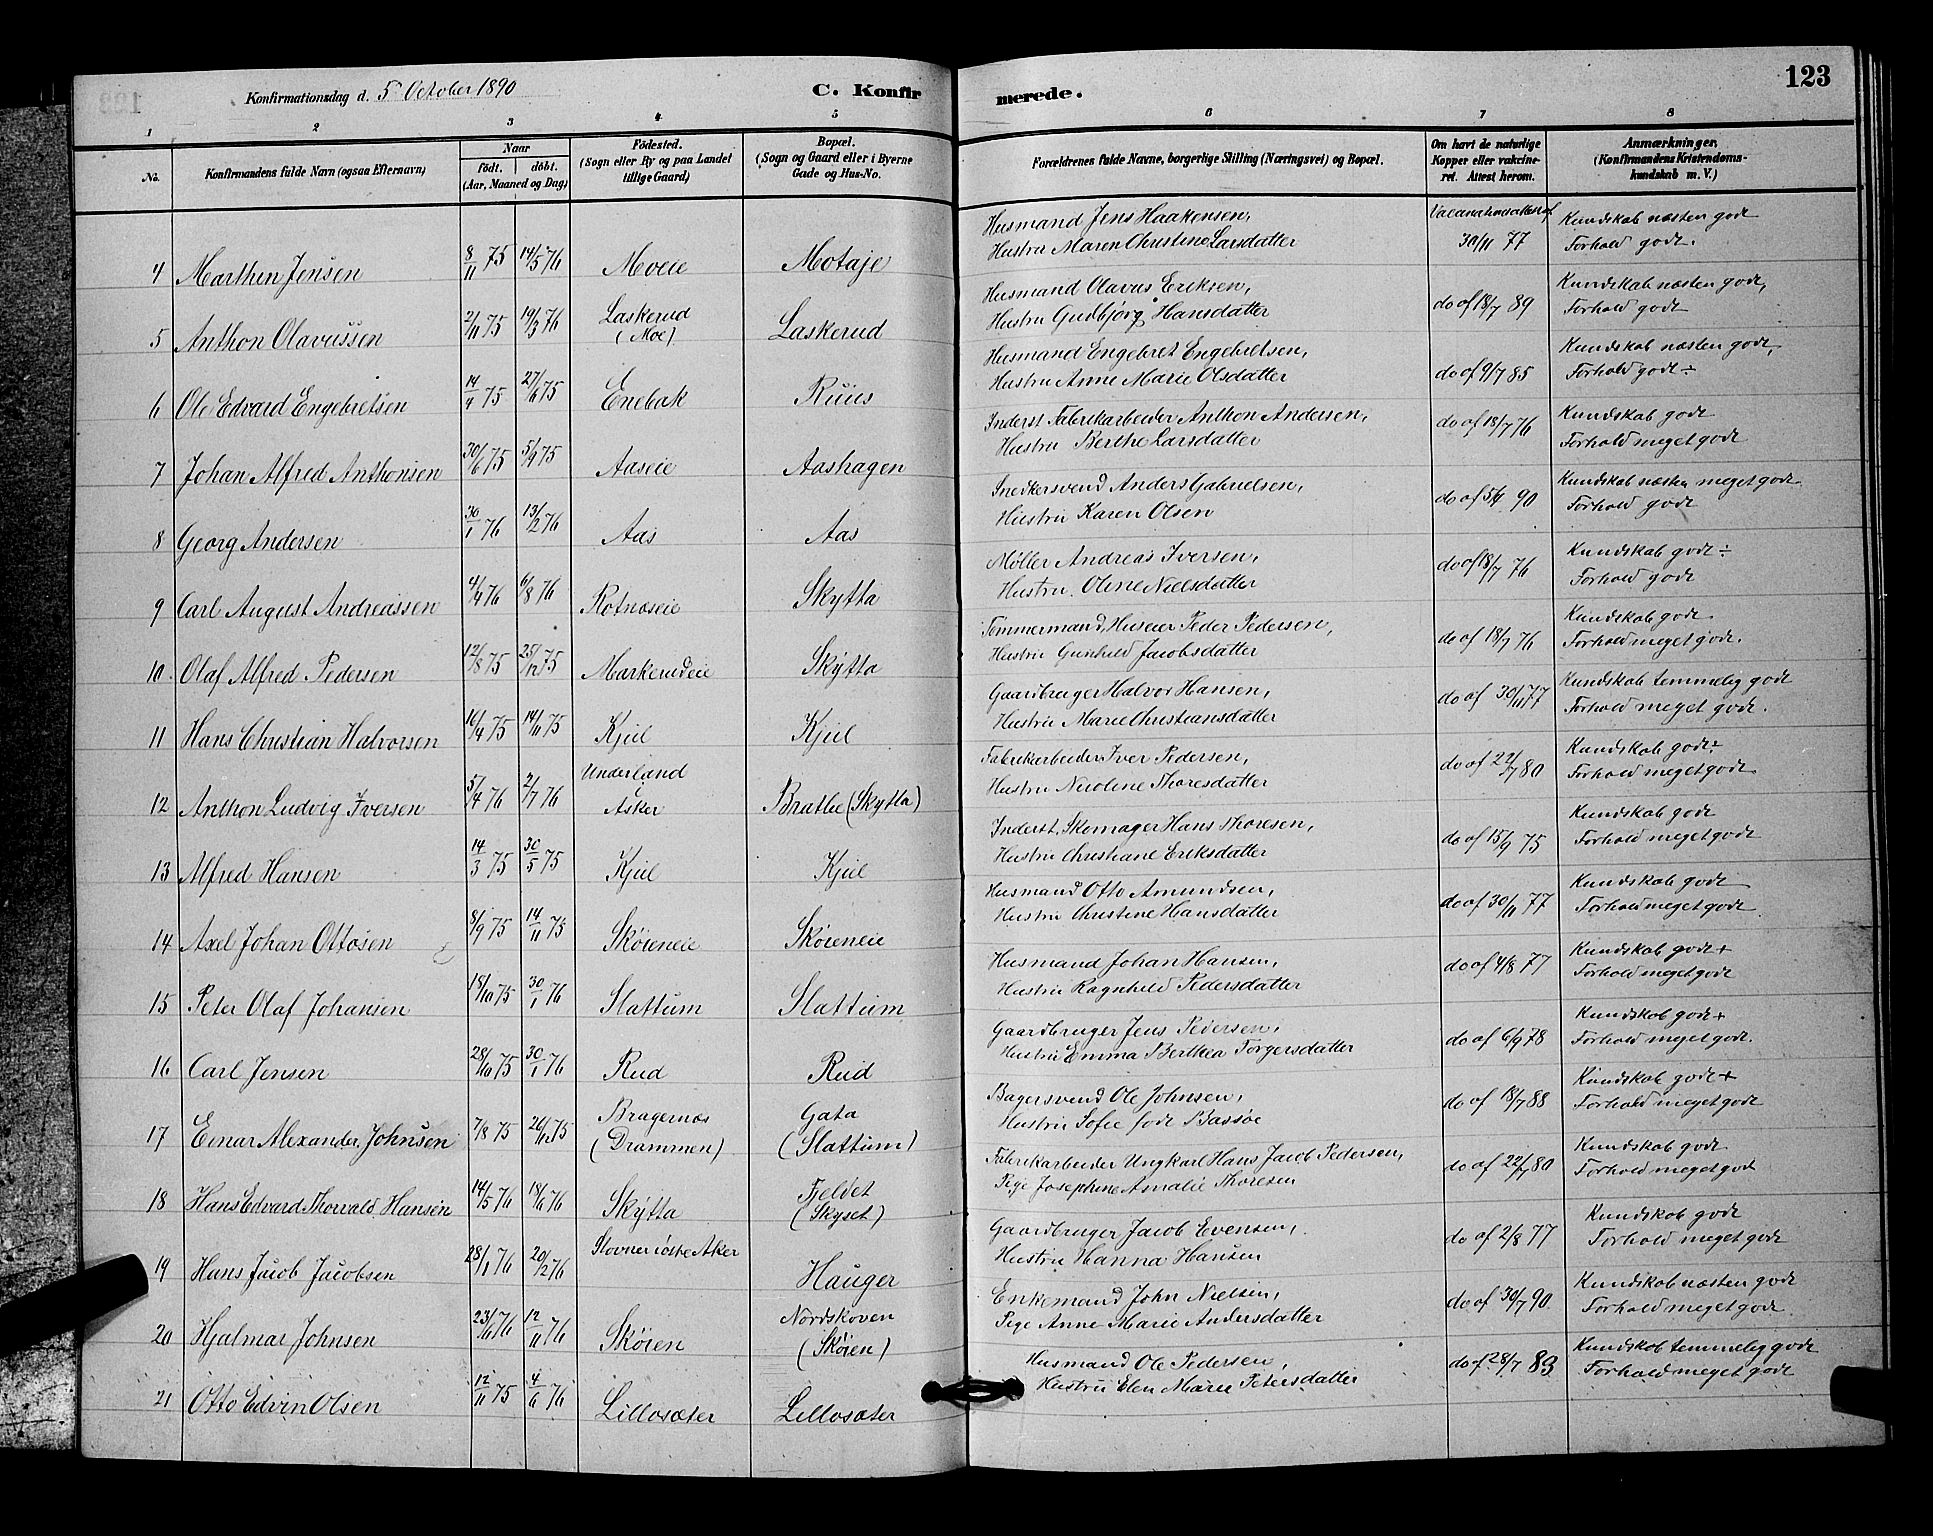 123
Konfirmationsdag d. 5 October 1890
C. Konfirmerede.
1 2 3 4 5 6 7 8
No.
Konfirmandens fulde Navn (ogsaa Efternavn)
Naar
født. døbt.
(Aar, Maaned og Dag)
Fødested.
(Sogn eller By og paa Landet
tillige Gaard)
Bopæl.
(Sogn og Gaard eller i Byerne
Gade og Hus-No.
Forældrenes fulde Navne, borgerlige Stilling (Næringsvei) og Bopæl.
Om havt de naturlige
Kopper eller vakcine-
ret. Attest herom.
Anmærkninger.
(Konfirmandens Kristendoms-
kundskab m. V.)
Husmand Jens Haakensen, Kundskab næsten godt
Hustru Maren Christine Larsdatter 30/11 77 Forhold godt.
4 Marthin Jensen 8/11 75 14/5 76 Moeie Motaje
Husmand Olavus Eriksen, Kundskab næsten godt,
Hustru Gudbjørg Hansdatter do af 18/7 89 Forhold godt
5 Anthon Olavussen 2/11 75 19/3 76 Laskerud (Moe) Laskerud
Husmand Engebret Engebretsen, Kundskab næsten godt,
Hustru Anne Marie Olsdatter do af 9/7 85 Forhold godt ÷
6 Ole Edvard Engebretsen 14/4 75 27/6 75 Enebak Ruus
Inderst Fabrikarbeider Anthon Andersen, do af 18/7 76 Kundskab godt
Hustru Berthe Larsdatter Forhold meget godt
7 Johan Alfred Anthonsen 30/6 75 5/9 75 Aaseie Aashagen
Snedkersvend Anders Gabrielsen, Kundskab næsten meget godt
Hustru Karen Olsen do af 90 Forhold godt
8 Georg Andersen 30/1 76 13/2 76 Aas Aas
Møller Andreas Iversen, do af 18/7 76 Kundskab godt ÷
Hustru Oline Nielsdatter Forhold godt
9 Carl August Andreassen 4/4 76 6/8 76 Rotnæseie Skytta
Tømmermand, Huseier Peder Pedersen, Kundskab godt
Hustru Gunhild Jacobsdatter do af 18/7 76 Forhold meget godt.
10. Olaf Alfred Pedersen 12/8 75 25/12 75 Markerudeie Skytta
Gaardbruger Halvor Hansen, do af 30/11 77 Kundskab temmelig godt
Hustru Marie Christiansdatter Forhold meget godt.
11 Hans Christian Halvorsen 16/4 75 14/11 75 Kjul Kjul
Fabrikarbeider Iver Pedersen, do af 22/7 80 Kundskab godt ÷
Hustru Nicoline Thoresdatter Forhold meget godt
12 Anthon Ludvig Iversen 5/4 76 2/7 76 Underland i Asker Bratlie (Skytta)
Inderst, Skomager Hans Thoresen, Kundskab godt
Hustru Christiane Eriksdatter do af 15/9 75 Forhold meget godt
13 Alfred Hansen 14/3 75 30/5 75 Kjul Kjul
Husmand Otto Amundsen, Kundskab godt
Hustru Christine Hansdatter do af 30/11 77 Forhold meget godt
14 Axel Johan Ottosen 8/9 75 14/11 75 Skøieneie Skøieneie
Husmand Johan Hansen, do af 4/8 77 Kundskab godt +
Hustru Ragnhild Pedersdatter Forhold meget godt
15 Peter Olaf Johansen 18/10 75 30/1 76 Slattum Slattum
Gaardbruger Jens Pedersen, do af 6/9 78 Kundskab godt +
Hustru Emma Berthea Torgersdatter Forhold meget godt.
16 Carl Jensen 28/10 75 30/1 76 Rud Rud
Bagersvend Ole Johnsen, do af 18/7 88 Kundskab godt +
Hustru Sofie født Bassøe Forhold meget godt
17 Einar Alexander Johnsen 7/8 75 26/12 75 Bragernæs (Drammen) Gata (Slattum)
Fabrikarbeider Ungkarl Hans Jacob Pedersen, do af 22/7 80 Kundskab godt
Pige Josephine Amalie Thoresen Forhold meget godt
18 Hans Edvard Thorvald Hansen 14/5 76 18/6 76 Skytta Fjeldet (Skyset)
Gaardbruger Jacob Evensen, do af 2/8 77 Kundskab godt
Hustru Hanna Hansen Forhold meget godt
19 Hans Jacob Jacobsen 28/1 76 20/2 76 Stovner i østre Aker Hauger
Enkemand John Nielsen, do af 30/7 90 Kundskab næsten godt
Pige Anne Marie Andersdatter Forhold meget godt.
20 Hjalmar Johnsen 23/6 76 12/11 76 Skøien Nordskoven (Skøien)
Husmand Ole Pedersen, do af 28/7 83 Kundskab temmelig godt
Hustru Elen Marie Petersdatter Forhold meget godt
21 Otto Edvin Olsen 12/11 75 4/6 76 Lillosæter Lillosæter